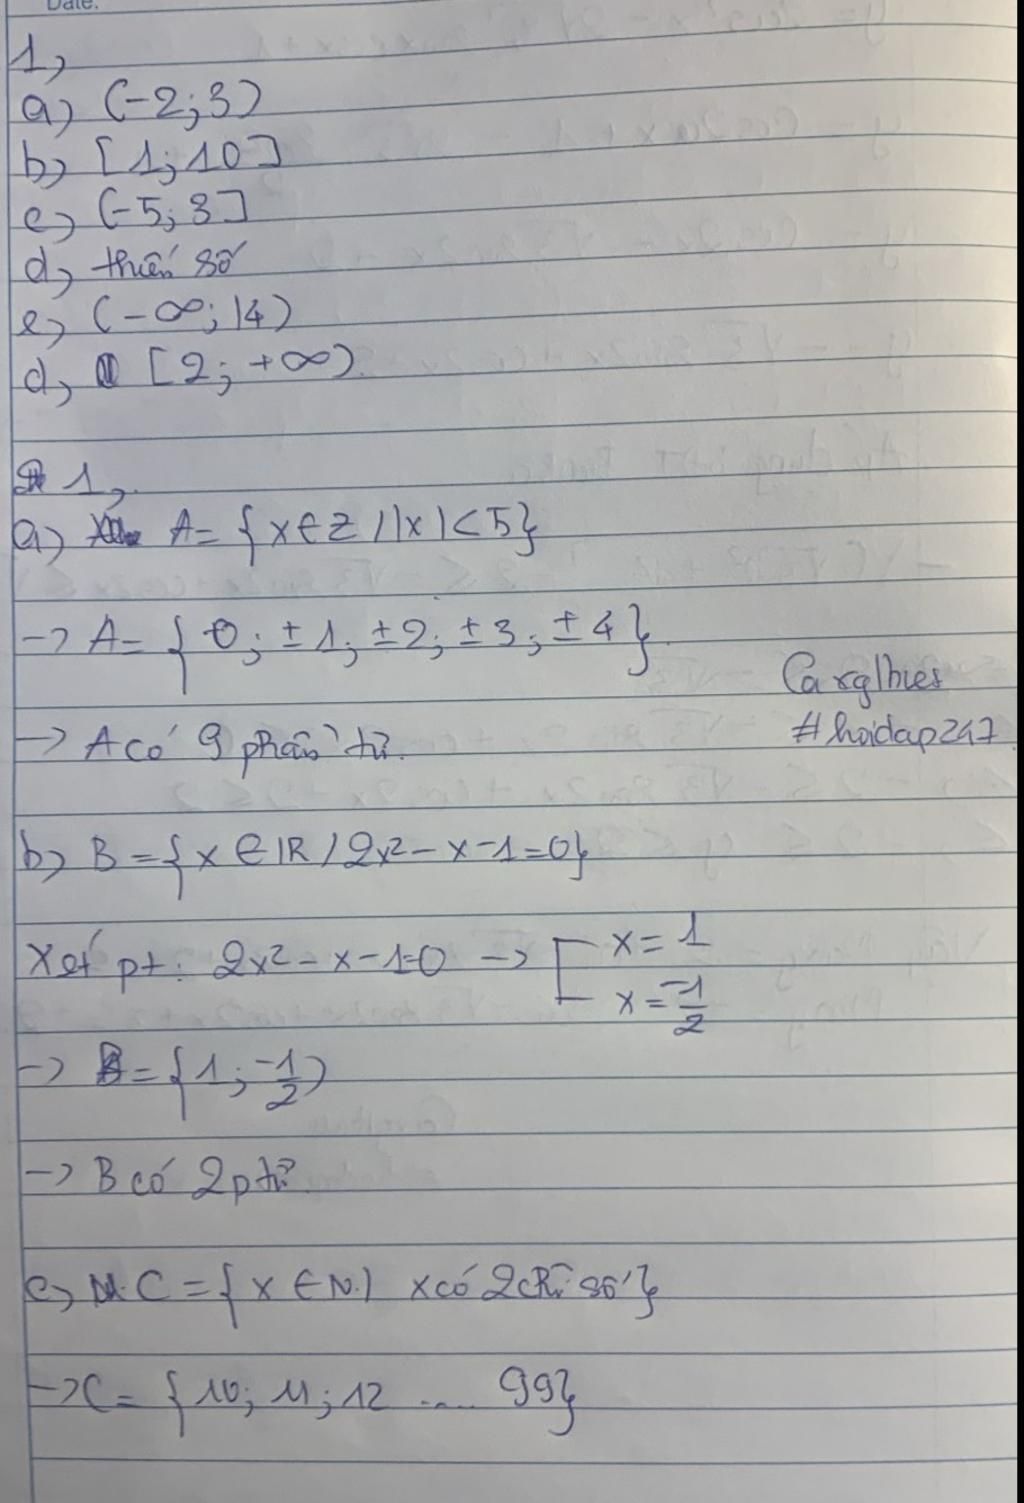 Date:
1,
a, (-2;3)
b, [1;10]
c, (-5;3]
d, thiếu số
e, (-∞;14)
d, [2;+∞).
1,
a, A= {x∈Z / |x|<5}
-> A= {0; ±1; ±2; ±3; ±4}.
Carglhies
-> A có 9 phần tử.
#hoidap247
b, B ={x∈R / 2x²-x-1=0}
Xét pt: 2x²-x-1=0 -> [ x=1
x=-1/2
-> B={1; -1/2)
-> B có 2ptử
c, C={x∈N / x có 2chữ số}
->C= {10; 11; 12 .... 99}